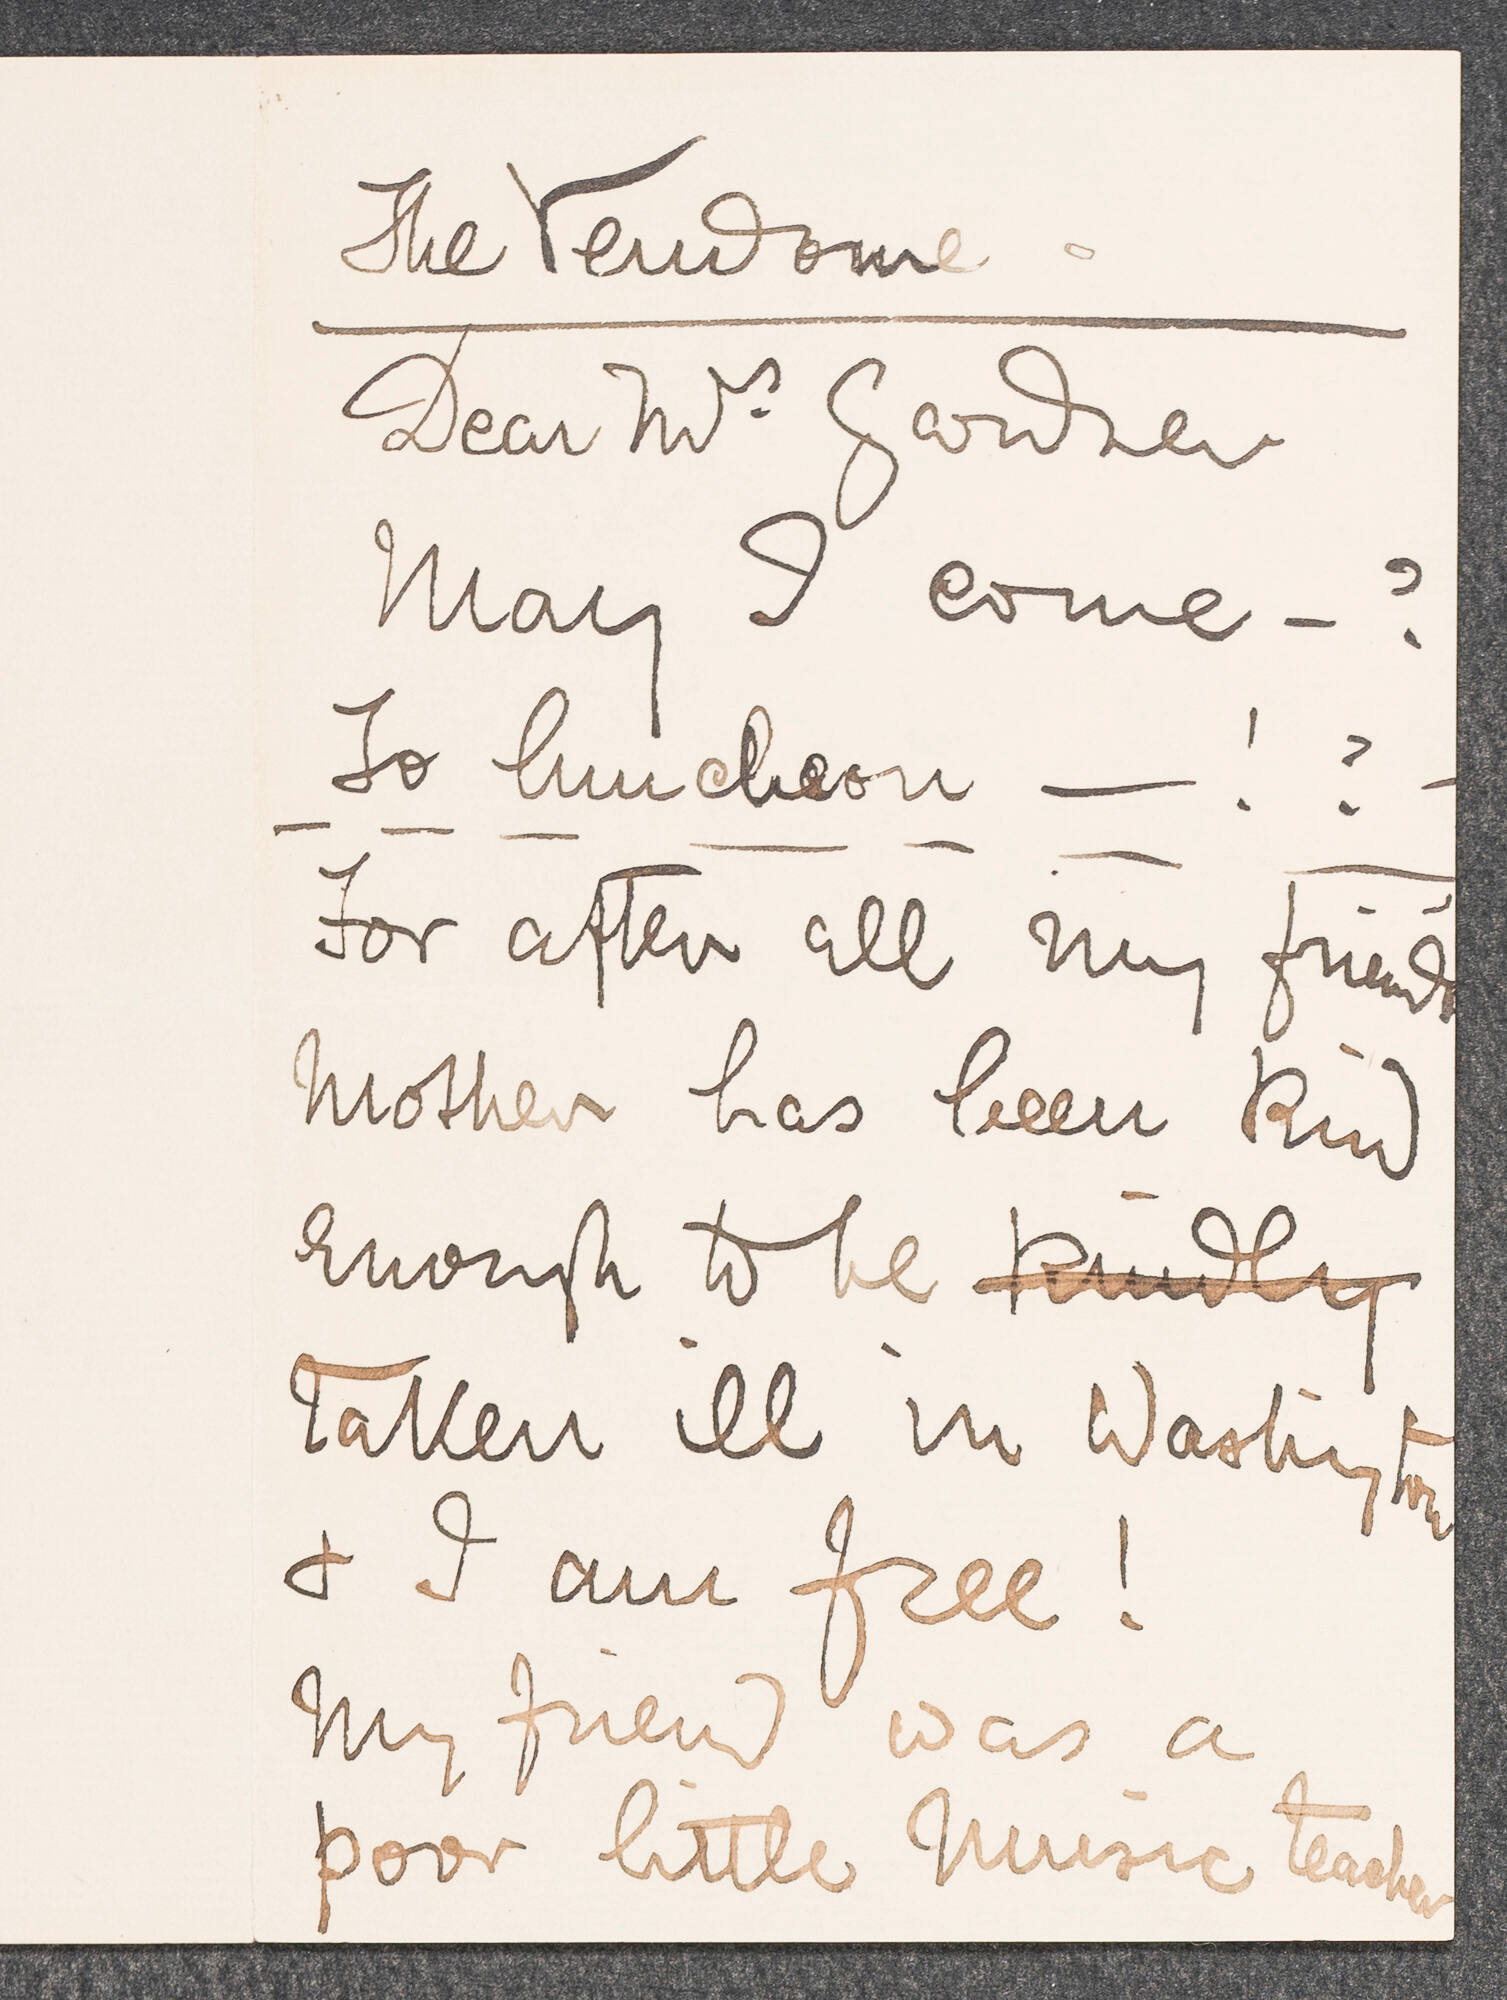 The Vendome -
Dear Mrs. Gardner
May I come - ?
To luncheon — ! ? -
For after all my friend's
Mother has been kind
enough to be kindly
taken ill in Washington
& I am free!
My friend was a
poor little Music teacher